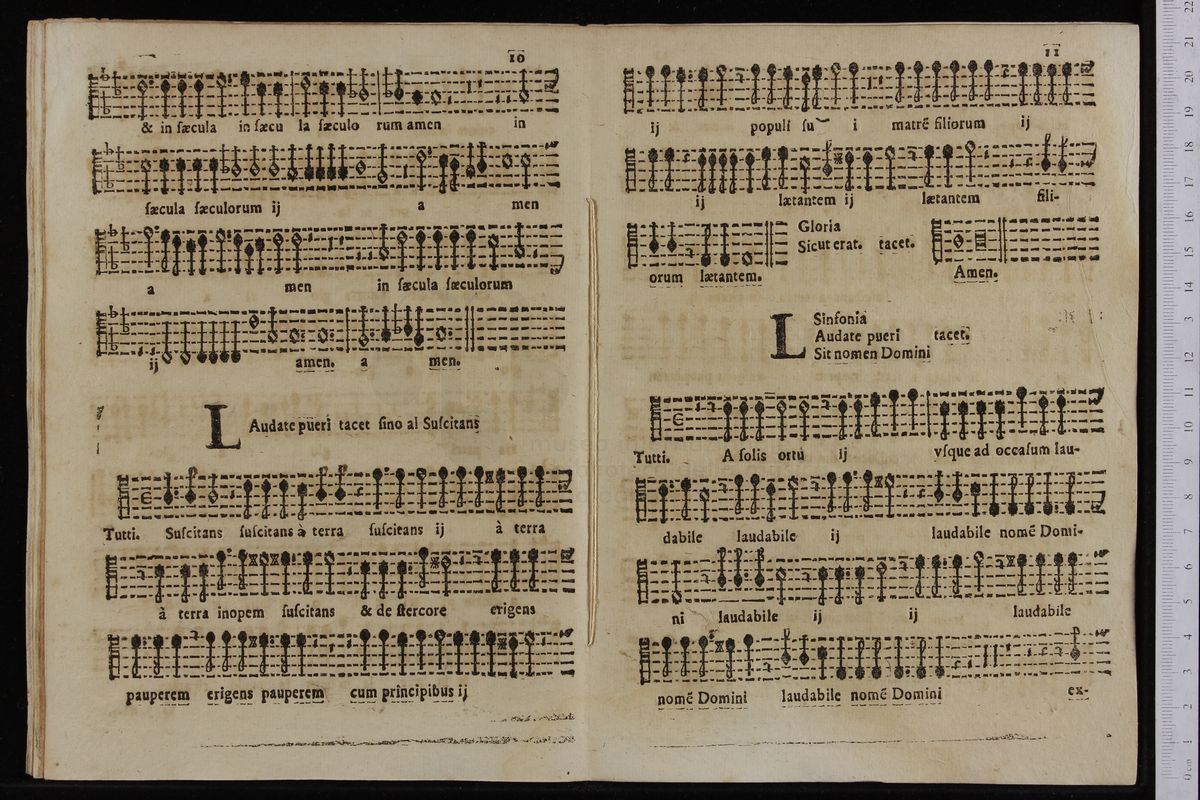 10
& in sæcula in sæcu la sæculo rum amen in
sæcula sæculorum ij a men
a men in sæcula sæculorum
ij amen. a men.
LAudate pueri tacet sino al Suscitans
Tutti. Suscitans suscitans à terra suscitans ij à terra
à terra inopem suscitans & de stercore erigens
pauperem erigens pauperem cum principibus ij
11
ij populi su i matrē filiorum ij
ij lætantem ij lætantem fili-
orum lætantem.
Gloria
Sicut erat. tacet.
Amen.
Sinfonia
LAudate pueri tacet.
Sit nomen Domini
Tutti. A solis ortu ij vsque ad occasum lau-
dabile laudabile ij laudabile nomē Domi-
ni laudabile ij ij laudabile
nomē Domini laudabile nomē Domini ex-
22
21
20
19
18
17
16
15
14
13
12
11
10
9
8
7
6
5
4
3
2
1
0 cm